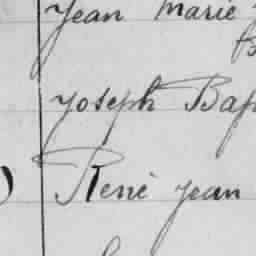 Jean Marie
Joseph Bap
René Jean